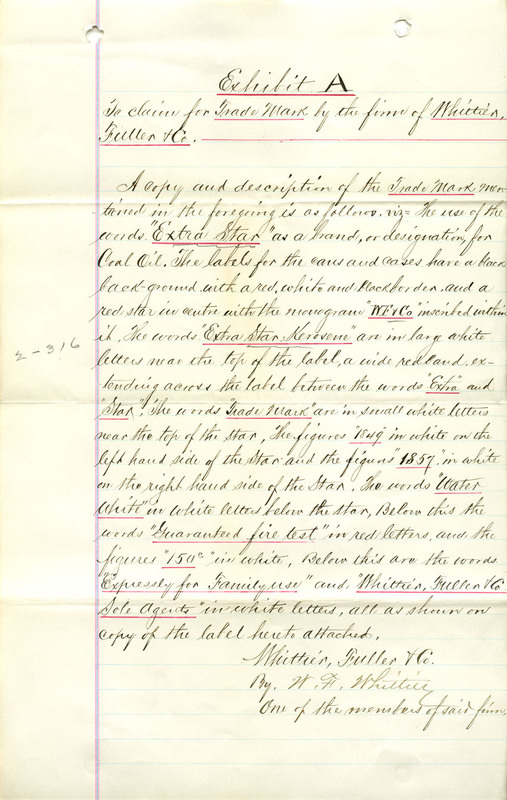 Exhibit A
To claim for Trade Mark by the firm of Whittier,
Fuller & Co.
A copy and description of the Trade Mark men-
tioned in the foregoing is as follows, viz= The use of the
words "Extra Star" as a brand, or designation, for
Coal Oil. The labels for the cans and cases have a black
back-ground with a red, white and black border, and a
red star in centre with the monogram "WF&Co" inscribed within
it. The words "Extra Star Kerosene" are in large white
letters near the top of the label, a wide red band, ex-
tending across the label between the words "Extra" and
"Star". The words "Trade Mark" are in small white letters
near the top of the star, The figures "1849" in white on the
left hand side of the Star and the figures "1857" in white
on the right hand side of the Star, The words "Water
White" in white letters below the star, Below this the
words "Guaranteed fire test" in red letters, and the
figures "150°" in white, Below this are the words
"Expressly for Family use" and "Whittier, Fuller & Co
Sole Agents" in white letters, all as shown on
copy of the label hereto attached.
Whittier, Fuller & Co.
By. W. F. Whittier
One of the members of said firm.
2-316